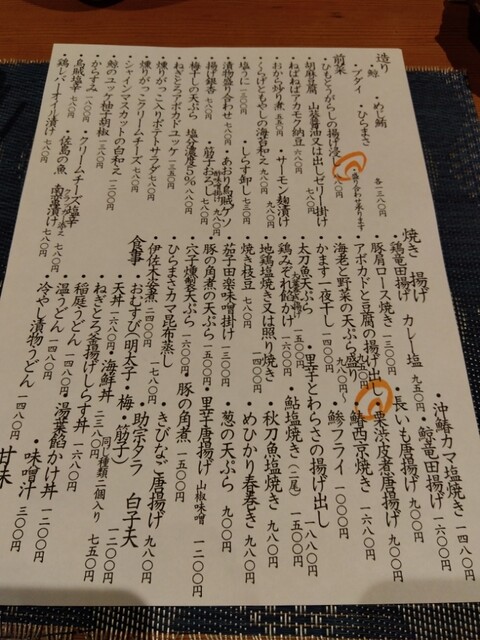 造り
・鯨 ・めじ鮪
・ブダイ ・ひらまさ
各一三八〇円
・盛り合わせ承ります
前菜
・ひもとうがらしの揚げ浸し
・胡麻豆腐 山葵醤油又は出しゼリー掛け 六八〇円
・ねばねばアカモク納豆 六八〇円
・おから炒り煮 五五〇円 ・サーモン麹漬け
・くらげともやしの海苔和え 九八〇円
・塩うに 一三〇〇円 ・しらす卸し 七三〇円
・漬物盛り合わせ 七八〇円 ・あおり烏賊ゲソ
・揚げ銀杏 七八〇円 ・筋子おろし 九八〇円
・梅干しの天ぷら 塩分濃度5% 八八〇円
・ねぎとろアボカドユッケ 一三五〇円
・燻りがっこ入りポテトサラダ 七八〇円
・燻りがっこクリームチーズ 七八〇円
・シャインマスカットの白和え 一二〇〇円
・鯨のユッケ柚子胡椒 一三〇〇円
・からすみ 一八〇〇円 ・クリームチーズ塩辛
・烏賊塩辛 七八〇円
・鶏レバーオイル漬け 七八〇円
焼き 揚げ
・鶏竜田揚げ カレー 塩 九五〇円
・豚肩ロース焼き 一三〇〇円
・アボカドと豆腐の揚げ出し 九五〇円
・海老と野菜の天ぷら盛り 九八〇円〜
・かます一夜干し 一四〇〇円
・太刀魚天ぷら 一五〇〇円 ・里芋とわらさの揚げ出し 一八八〇円
・鶏みぞれ餡かけ
・地鶏塩焼き又は照り焼き 一四〇〇円
・焼き枝豆 七八〇円
・茄子田楽味噌掛け 一三〇〇円
・豚の角煮の天ぷら 一五〇〇円
・穴子燻製天ぷら 一六〇〇円 ・豚の角煮 一五〇〇円
・ひらまさカマ昆布蒸し 一七八〇円
・伊佐木姿煮 二四〇〇円
・沖鰆カマ塩焼き 一四八〇円
・鯨竜田揚げ 一六八〇円
・栗渋皮煮唐揚げ 九八〇円
・長いも唐揚げ 九〇〇円
・鰆西京焼き 一六八〇円
・鯵フライ 一四八〇円
・鮎塩焼き(二尾) 一五〇〇円
・秋刀魚塩焼き
・めひかり春巻き 九八〇円
・葱の天ぷら 九〇〇円
・里芋唐揚げ 山椒味噌 一二〇〇円
・きびなご唐揚げ 九八〇円
・助宗タラ 白子天 一二〇〇円
食事
・おむすび(明太子・梅・筋子) 同じ種類二個入り 七五〇円
・天丼 一六八〇円 ・海鮮丼 二三八〇円
・ねぎとろ釜揚げしらす丼 一六八〇円
・稲庭うどん 一四八〇円 ・湯葉餡かけ丼 一二〇〇円
・温うどん 一四八〇円 ・味噌汁 三〇〇円
・冷やし漬物うどん 一四八〇円
甘味